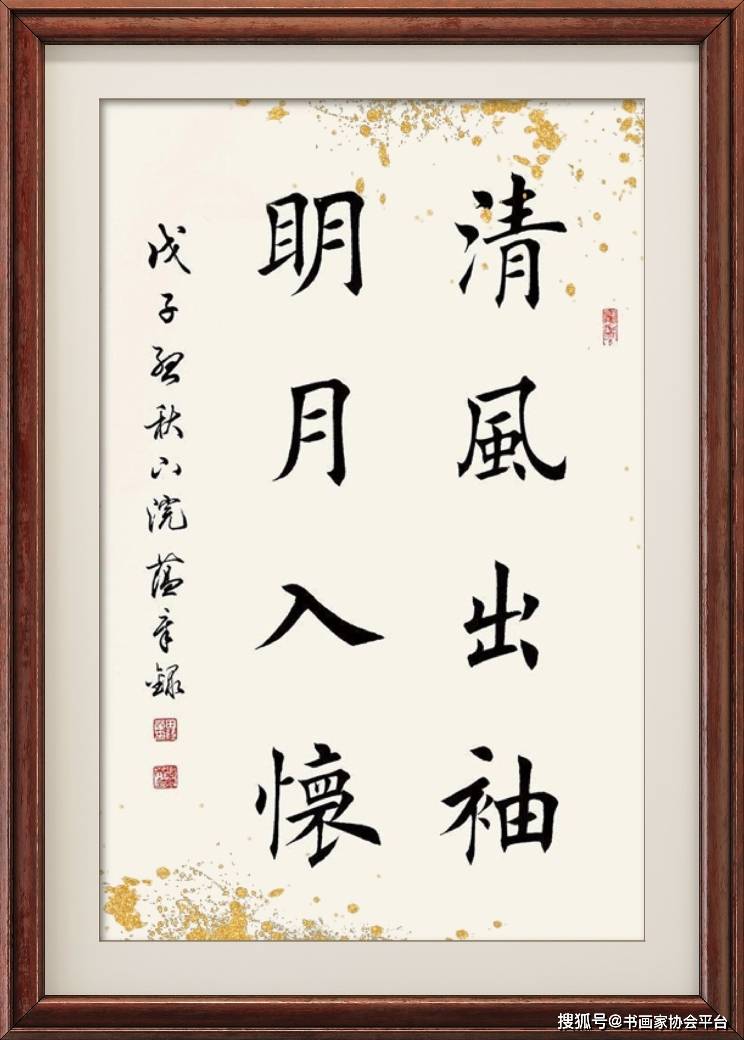 清風出袖
明月入懷
戊子孟秋下浣蔭章錄
搜狐号@书画家协会平台